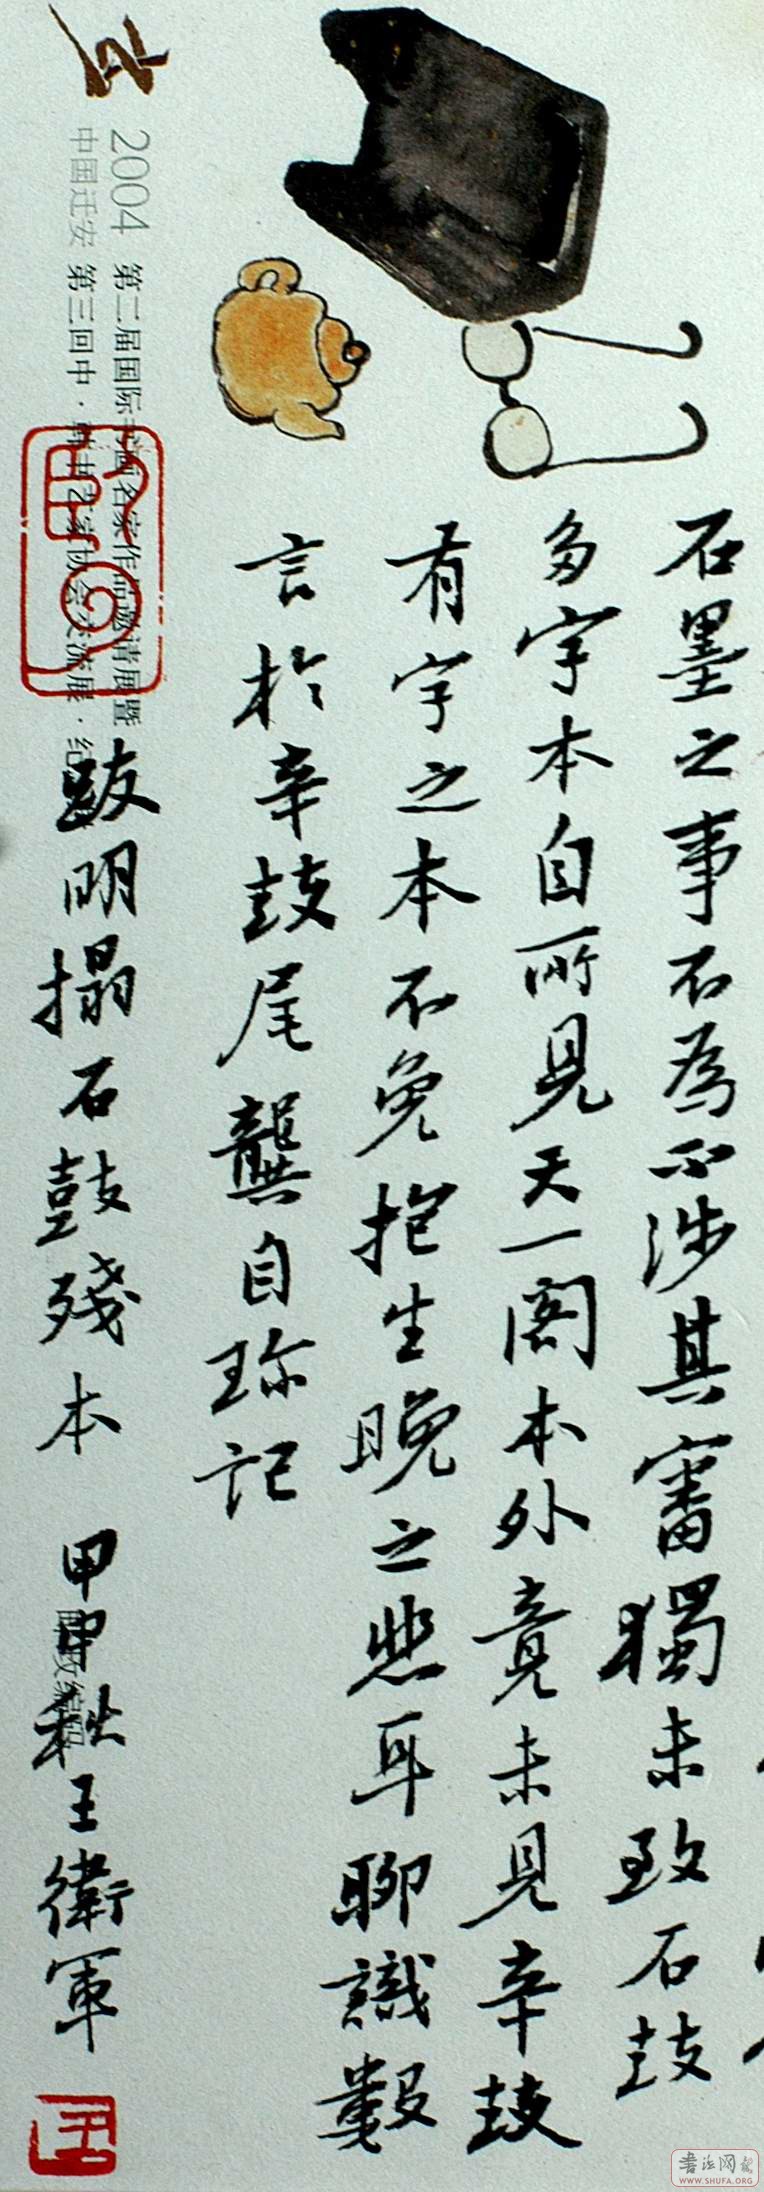 石墨之事不爲不涉其審獨未致石鼓
多字本自所見天一閣本外竟未見辛鼓
有字之本不免抱生晚之悲耳聊識數
言於辛鼓尾龔自珍記
跋明搨石鼓殘本 甲申秋王衛軍
2004 第二届国际书画名家作品邀请展暨
中国迁安 第三回中·韩书艺家协会交流展·纪
書法网
WWW.SHUFA.ORG